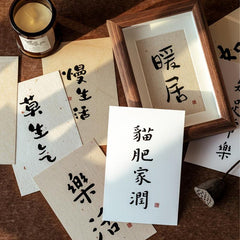 慢生活
暖居
莫生气
貓肥家潤
樂活